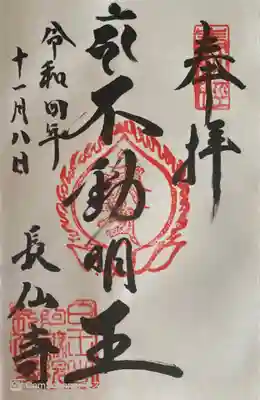 奉拝
不動明王
令和四年
十一月八日
長仙寺